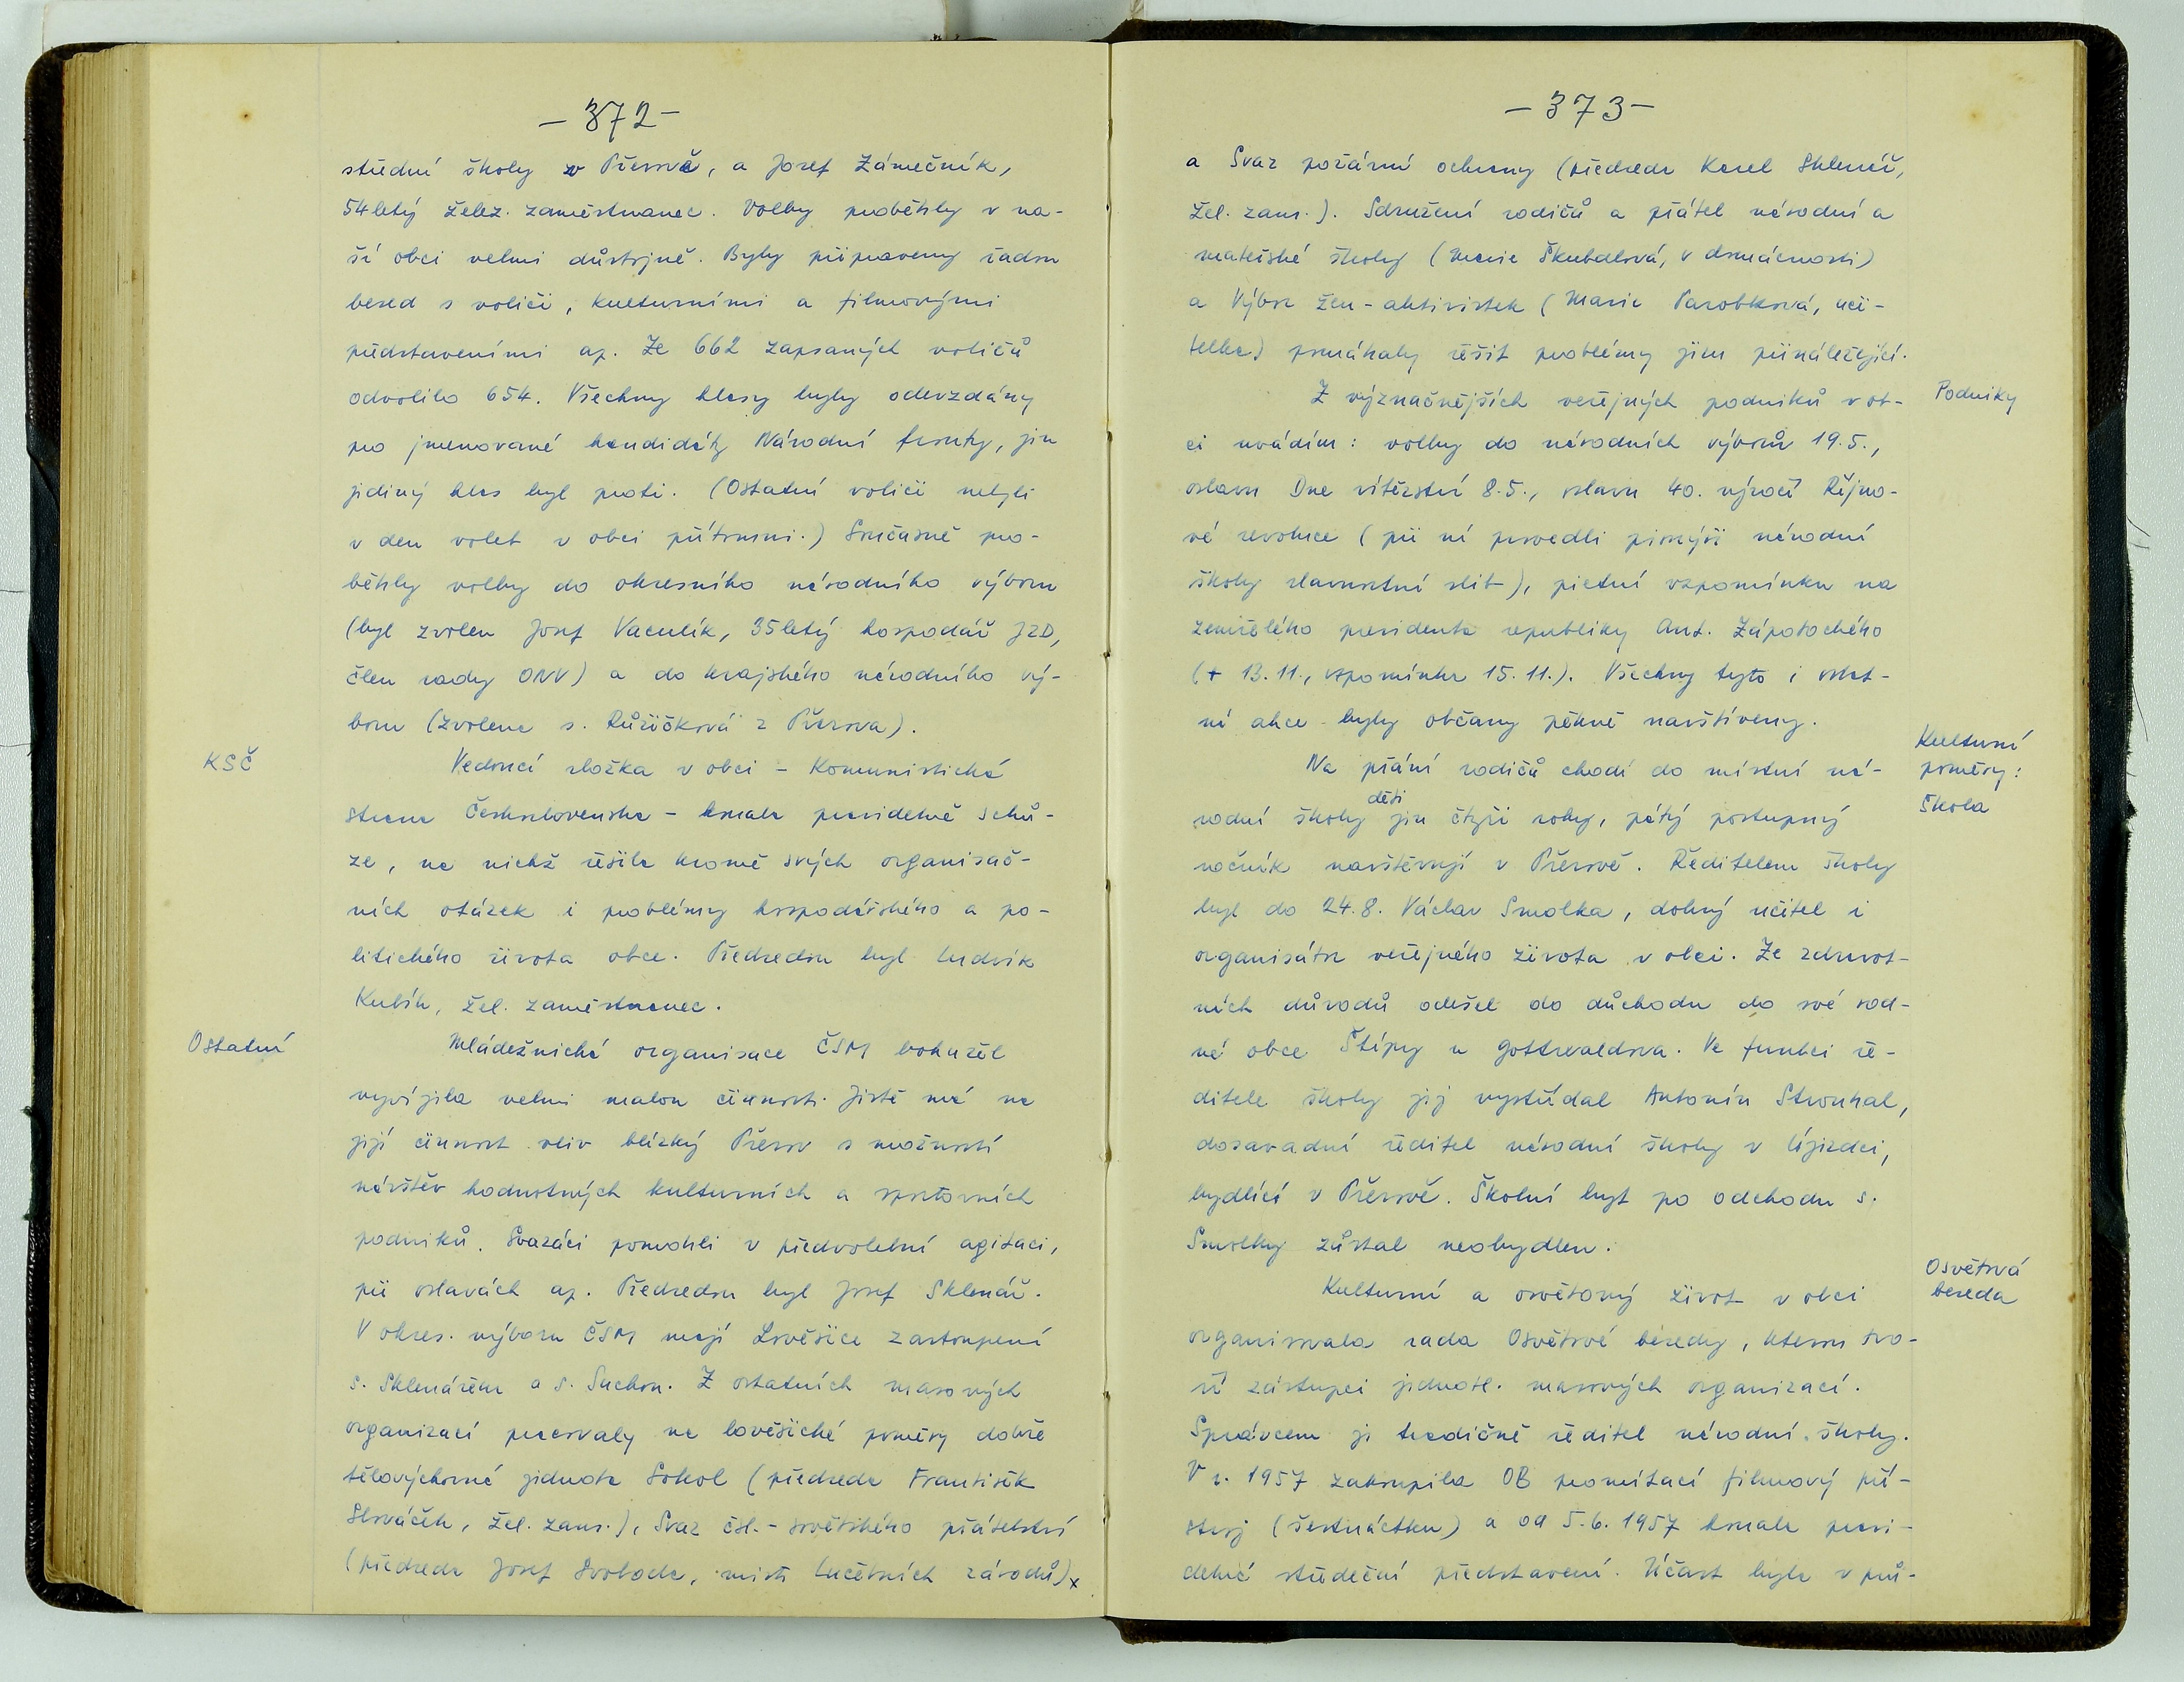 - 372 -
střední školy v Přerově, a Josef Zámečník,
54letý želez. zaměstnanec. Volby proběhly v na-
ší obci velmi důstojně. Byly připraveny řadou
besed s voliči, kulturními a filmovými
představeními ap. Ze 662 zapsaných voličů
odvolilo 654. Všechny hlasy byly odevzdány
pro jmenované kandidáty Národní fronty, jen
jediný hlas byl proti. (Ostatní voliči nebyli
v den voleb v obci přítomni.) Současně pro-
běhly volby do okresního národního výboru
(byl zvolen Josef Vaculík, 35letý hospodář JZD,
člen rady ONV) a do krajského národního vý-
boru (zvolena s. Růžičková z Přerova).
KSČ
Vedoucí složka v obci - Komunistická
strana Československa - konala pravidelně schů-
ze, na nichž řešila kromě svých organisač-
ních otázek i problémy hospodářského a po-
litického života obce. Předsedou byl Ludvík
Kubík, žel. zaměstnanec.
Ostatní
Mládežnická organisace ČSM bohužel
vyvíjela velmi malou činnost. Jistě má na
její činnost vliv blízký Přerov s možností
návštěv hodnotných kulturních a sportovních
podniků. Svazáci pomohli v předvolební agitaci,
při oslavách ap. Předsedou byl Josef Sklenář.
V okres. výboru ČSM mají Lověšice zastoupení
s. Sklenářem a s. Suchou. Z ostatních masových
organizací pracovaly na lověšické poměry dobře
tělovýchovná jednota Sokol (předseda František
Slováček, žel. zam.), Svaz čsl.-sovětského přátelství
(předseda Josef Svoboda, mistr Lučebních závodů)x
- 373 -
a Svaz požární ochrany (předseda Karel Sklenář,
žel. zam.). Sdružení rodičů a přátel národní a
mateřské školy (Marie Škubalová, v domácnosti)
a Výbor žen-aktivistek (Marie Parobková, uči-
telka) pomáhaly řešit problémy jim přináležející.
Podniky
Z význačnějších veřejných podniků v ob-
ci uvádím: volby do národních výborů 19.5.,
oslavu Dne vítězství 8.5., oslavu 40. výročí Říjno-
vé revoluce (při ní provedli pionýři národní
školy slavnostní slib), pietní vzpomínku na
zemřelého presidenta republiky Ant. Zápotockého
(+ 13.11., vzpomínka 15.11.). Všechny tyto i ostat-
ní akce byly občany pěkně navštíveny.
Kulturní
poměry:
Škola
Na přání rodičů chodí do místní ná-
rodní školy děti jen čtyři roky, pátý postupný
ročník navštěvují v Přerově. Ředitelem školy
byl do 24.8. Václav Smolka, dobrý učitel i
organisátor veřejného života v obci. Ze zdravot-
ních důvodů odešel do důchodu do své rod-
né obce Štípy u Gottwaldova. Ve funkci ře-
ditele školy jej vystřídal Antonín Strouhal,
dosavadní ředitel národní školy v Újezdci,
bydlící v Přerově. Školní byt po odchodu s.
Smolky zůstal neobydlen.
Osvětová
beseda
Kulturní a osvětový život v obci
organisovala rada Osvětové besedy, kterou tvo-
ří zástupci jednotl. masových organizací.
Správcem je tradičně ředitel národní školy.
V r. 1957 zakoupila OB promítací filmový pří-
stroj (šestnáctku) a od 5.6.1957 konala pravi-
delná středeční představení. Účast byla v prů-